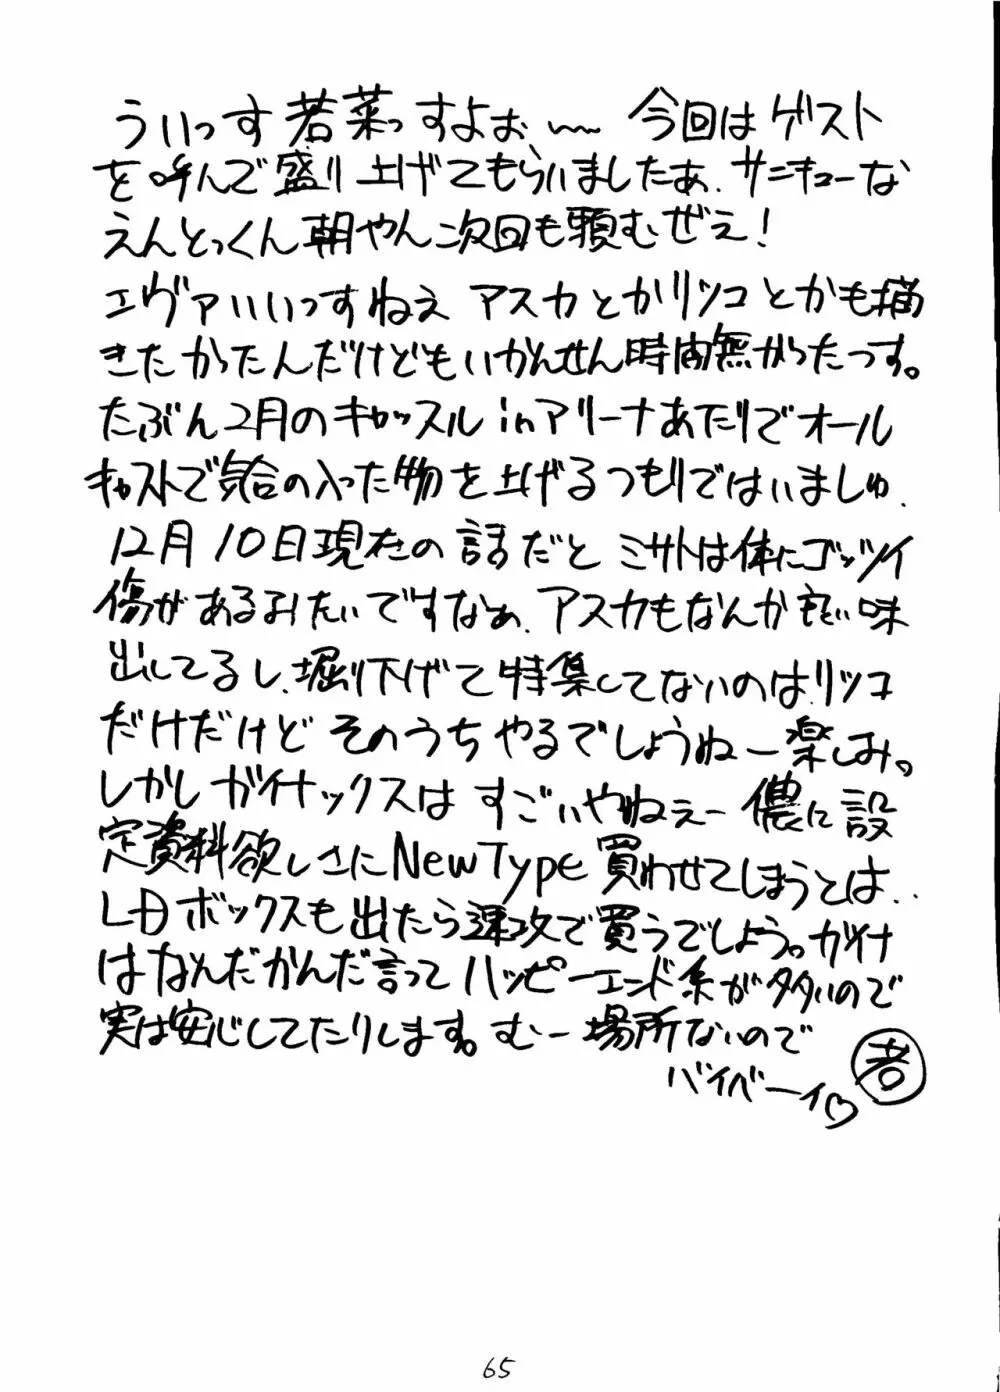 ういっす若菜っすよぉ、〜〜 今回はゲスト
を呼んで盛り上げてもらいましたぁ、サンキューな
えんとっくん朝やん次回も頼むぜえ!
エヴァいいっすねえ アスカとかリツコとかも描
きたかったんだけどもいかんせん時間無かったっす。
たぶん2月のキャッスルinアリーナあたりでオール
キャストで気合の入った物を上げるつもりではいましゅ.
12月10日現在の話だと ミサトは体にゴッツイ
傷があるみたいですなぁ、アスカもなんか 味
出してるし、堀り下げて特集してないのは、リツコ
だけだけど そのうちやるでしょうねー楽しみ。
しかしガイナックスは すごいやねぇー 儂に設
定資料欲しさにNewType買わせてしまうとは..
LDボックスも出たら速攻で買うでしょう。ガイナ
はなんだかんだ言ってハッピーエンド系が多いので
実は安心してたりします。むー場所ないので
バイベーイ♡
若
65